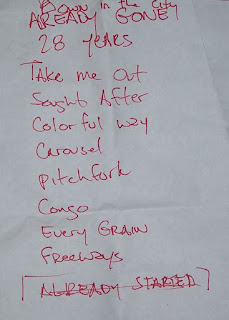 Down in the City
ALREADY GONE
28 YEARS
TAKE me OUT
Sought After
Colorful way
Carousel
Pitchfork
Congo
EVERY GRAIN
Freeways
ALREADY STARTED